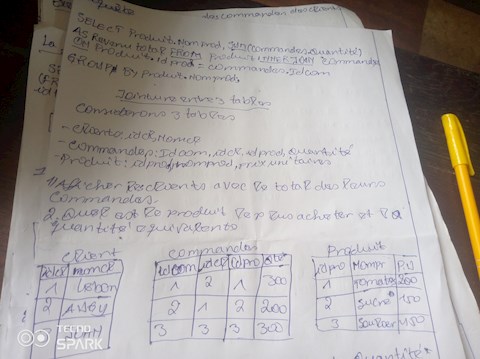 des commandes des clients
SELECT Produit.Nomprod, SUM(commandes.quantité)
As Revenu total FROM Produit INNER JOIN commandes
ON Produit.idprod = commandes.Idcom
GROUP By Produit.Nomprod,
Jointure entre 3 tables
Considérons 3 tables
- clients: idcl, Nomcl
- commandes: Idcom, idcl, idprod, quantité
- Produit: idprod, nomprod, prix unitaires
1) Afficher les clients avec le total des leurs
commandes.
2. Quel est le produit le plus acheter et la
quantité equivalente
client commandes Produit
idcl nomcl
1 Leban
2
idcom idcl idpro Qte
1 2 1 300
2 1 2 200
3 3 3 300
idpro Nompr P.U
1 tomates 200
2 sucre 150
3 450
TECNO
SPARK
quantité